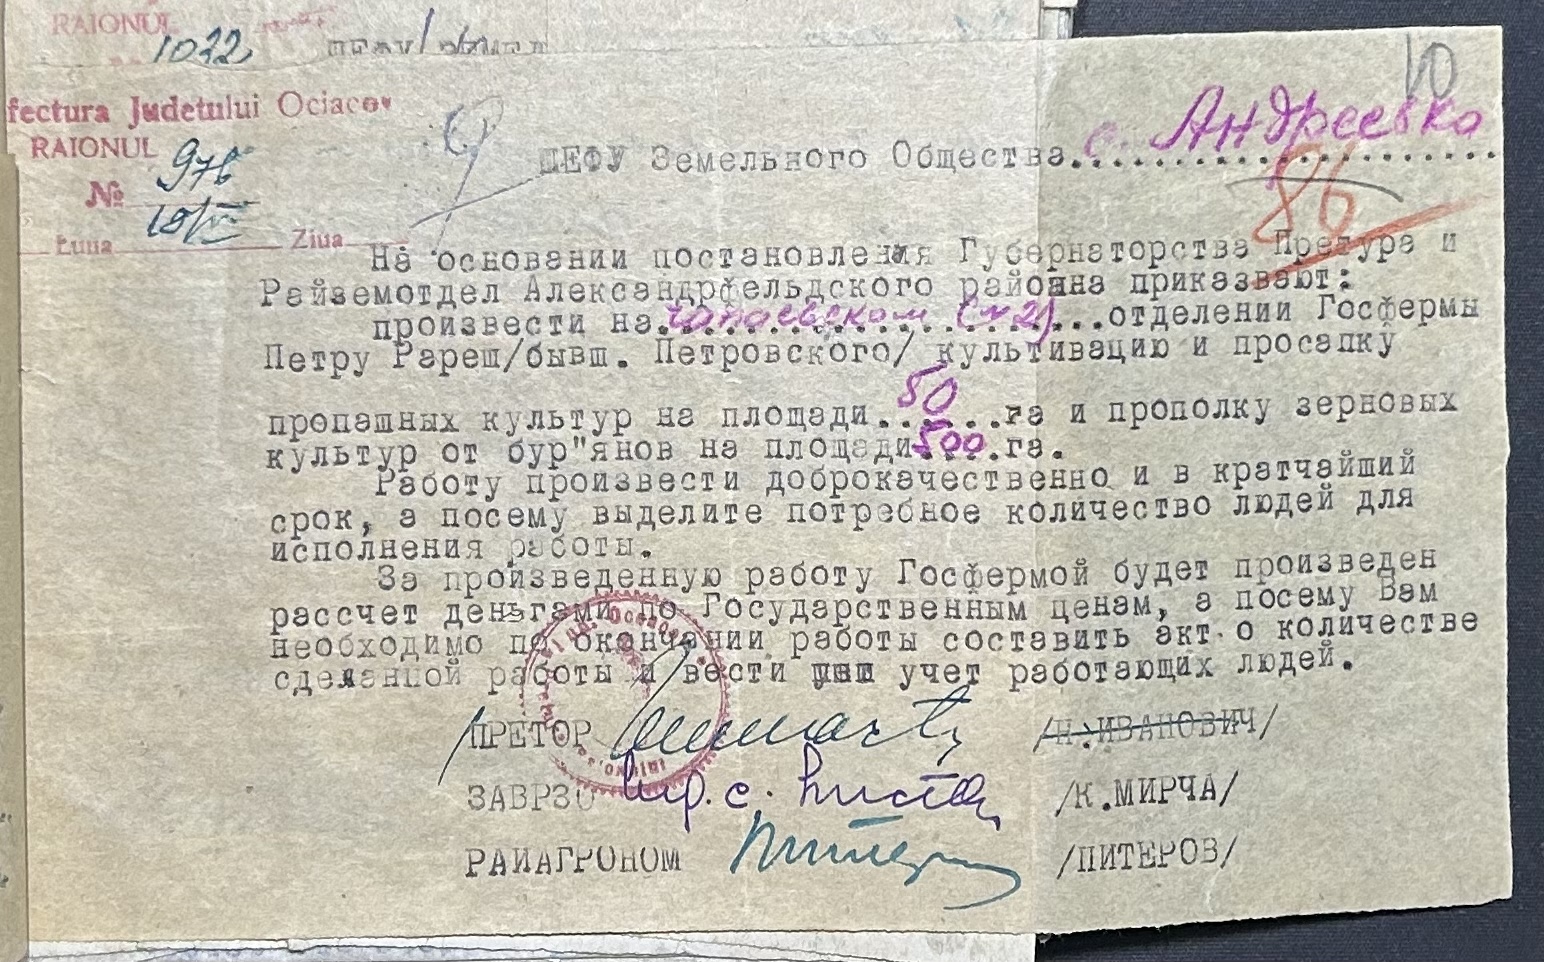 RAIONUL
1022
fectura Judetului Ociacov
RAIONUL
№ 976
Luna Ziua
10
ШЕФУ Земельного Общества с. Андреевка
86
На основании постановления Губернаторства Претура и
Райземотдел Александрфельдского района приказвают:
произвести на Чапаевском (№2) отделении Госфермы
Петру Рареш/бывш. Петровского/ культивацию и просапку
пропашных культур на площади 50 га и прополку зерновых
культур от бур"янов на площади 500 га.
Работу произвести доброкачественно и в кратчайший
срок, а посему выделите потребное количество людей для
исполнения работы.
За произведенную работу Госфермой будет произведен
рассчет деньгами по Государственным ценам, а посему Вам
необходимо по окончании работы составить акт о количестве
сделанной работы и вести учет работающих людей.
/ПРЕТОР /Н.ИВАНОВИЧ/
ЗАВРЗО /К.МИРЧА/
РАЙАГРОНОМ /ПИТЕРОВ/